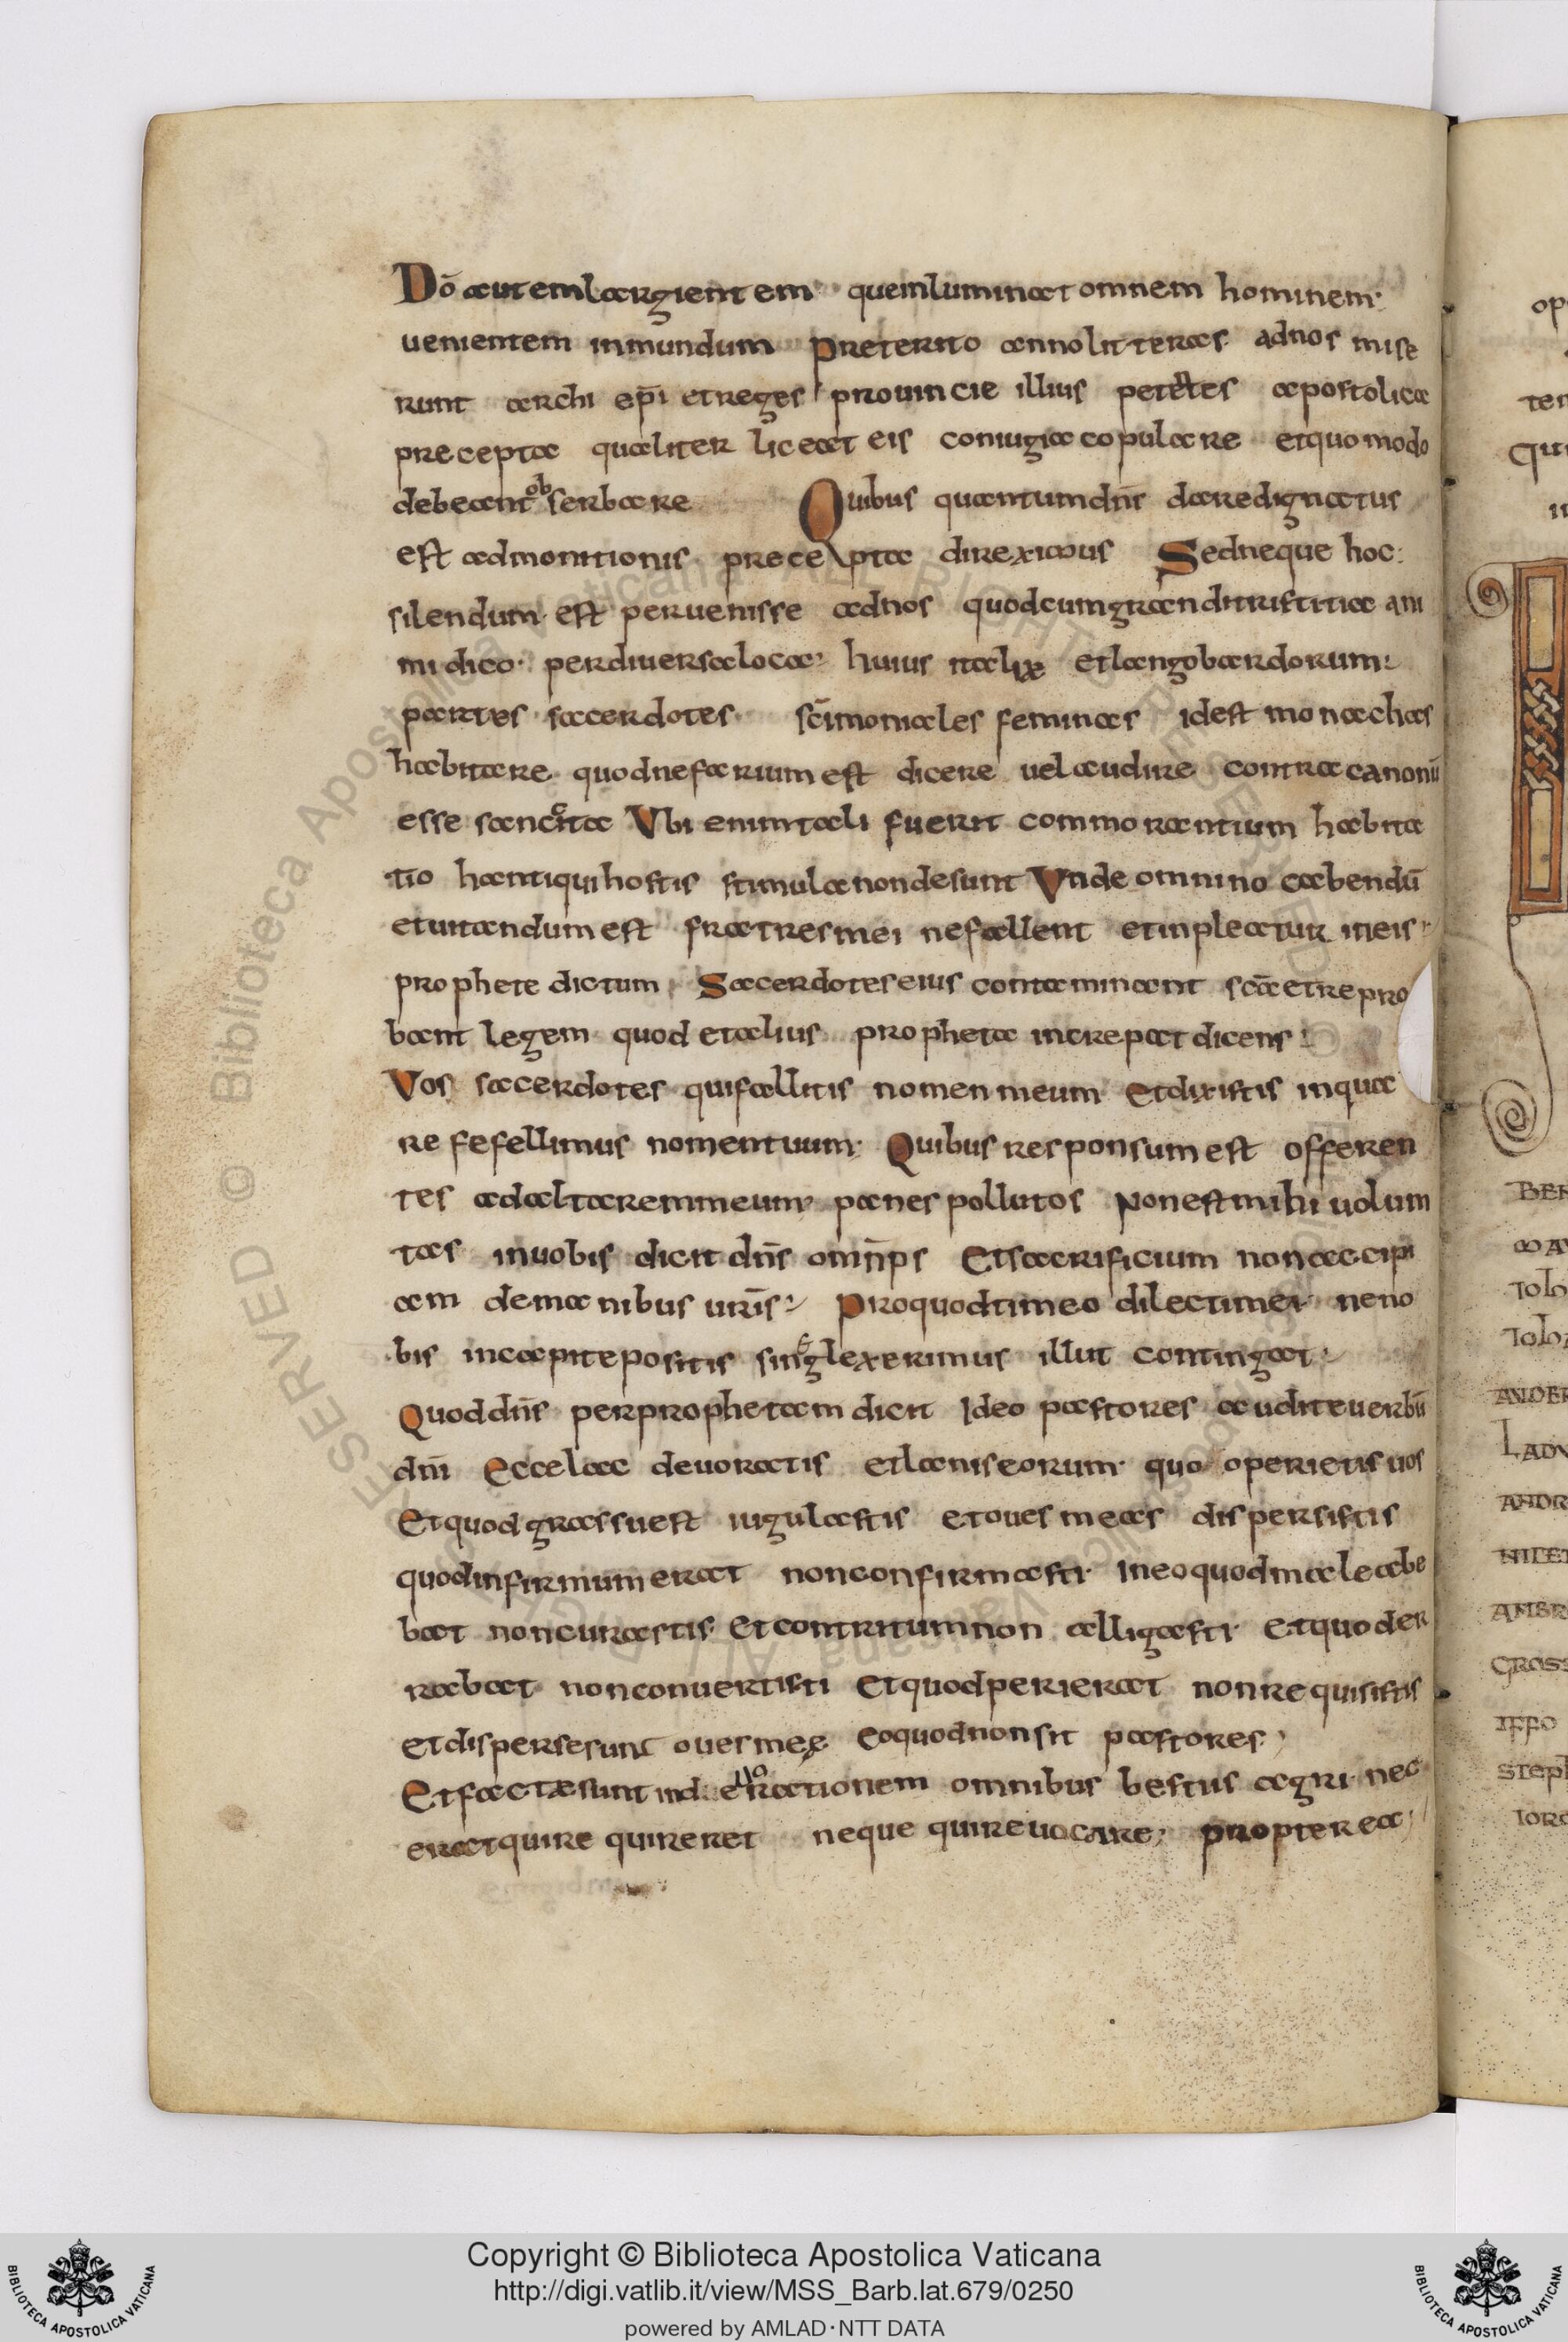 Dō autem largientem queinluminat omnem hominem
uenientem inmundum preterito anno litteras adnos mise
runt archi epī et reges prouincie illius petētes apostolica
precepta qualiter liceat eis coniugia copulare etquomodo
debeant observare Quibus quantum dn̄s dare dignatus
est admonitionis precepta direximus Sedneque hoc
silendum est peruenisse adnos quodcum grandi tristitia ani
mi dico perdiuersa loca huius italiæ et langobardorum
partes sacerdotes sc̄imoniales feminas idest monachas
habitare quodnefarium est dicere uel audire contra canonū
esse sancita Vbi enim tali fuerit commorantium habita
tio hantiqui hostis stimula nondesunt Vnde omnino cabendū
et uitandum est fratres mei nefallent etinpleatur ineis
prophete dictum Sacerdotes eius contaminant scā et repro
bant legem quod et alius propheta increpat dicens
Vos sacerdotes quifallitis nomen meum Et dixistis inqua
re fefellimus nomen tuum Quibus responsum est offeren
tes adaltarem meum panes pollutos Nonest mihi uolum
tas inuobis dicit dn̄s omn̄ps Et sacrificium non accipi
am de manibus uris̄ Pro quod timeo dilecti mei neno
bis incapite positis singlexerimus illut contingat
Quod dn̄s perprophetam dicit Ideo pastores audite uerbū
dn̄i Ecce lac deuoratis et lanis eorum quo operietis uos
Et quod grassu est iugulastis et oues meas dispersistis
quodinfirmum erat non confirmasti Ineo quod male abe
bat non curastis Et contritum non alligasti Et quod er
rabat non conuertisti Et quod perierat non requisistis
et disperse sunt oues meę eo quod non sit pastores
Et factæ sunt in deuorationem omnibus bestiis agri nec
erat qui re quireret neque qui reuocare propterea
Copyright © Biblioteca Apostolica Vaticana
http://digi.vatlib.it/view/MSS_Barb.lat.679/0250
powered by AMLAD·NTT DATA